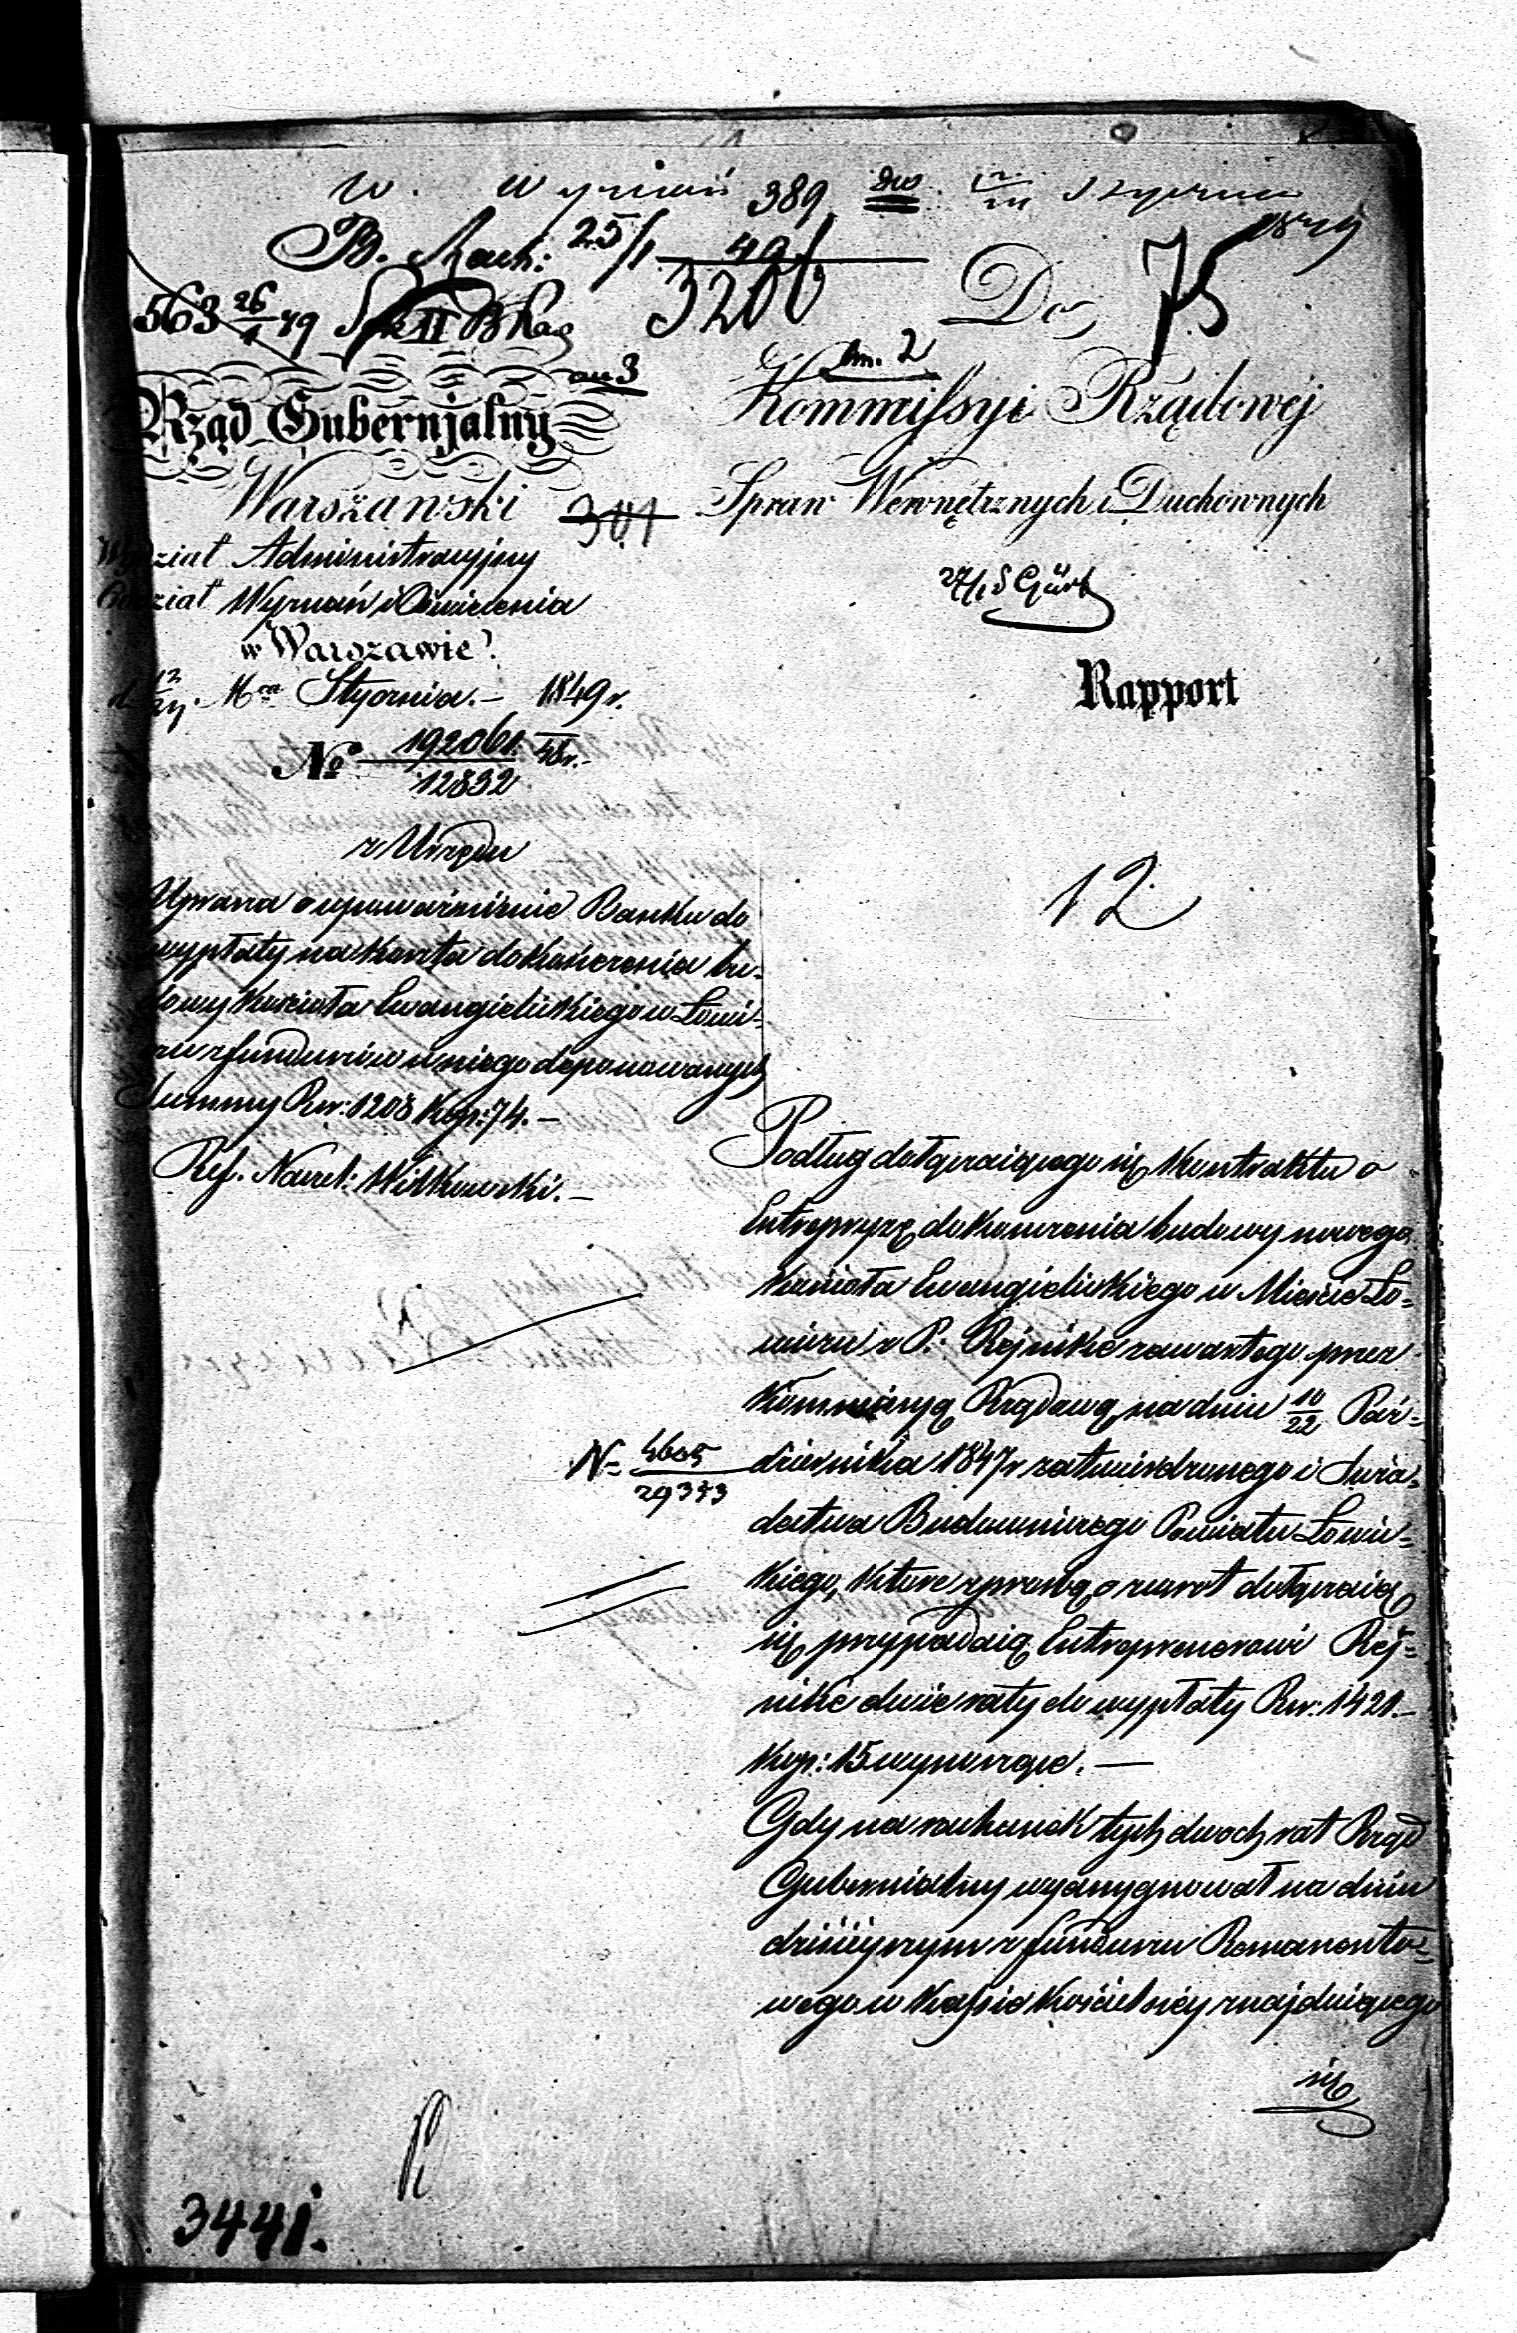 W. Wyznań 389
1849
B. Rach: 25/1 49
3206
Do
75
563 26/1 49
an 3
lm. 2
Rząd Gubernjalny
Warszawski
301
Wydział Administracyjny
Oddział Wyznań i Oświecenia
w Warszawie
d. 12/24 Mca Stycznia.- 1849 r.
No 192061/12832 48r.-
z Urzędu
Uprasza o upoważnienie Banku do
wypłaty na koszta dokończenia bu-
dowy Kościoła Ewangielickiego w Łowi-
czu z funduszów u niego deponowanych
Summy Rsr: 1208 Kop: 74.-
Ref. Nacz: Witkowski.-
Kommissyi Rządowéj
Spraw Wewnętrznych i Duchownych
27/1
Rapport
12
Podług dołączaiącego się Kontraktu o
Entrepryzę dokończenia budowy nowego
Kościoła Ewangielickiego w Mieście Ło-
wiczu z P: Rejnike zawartego przez
Kommissyą Rządową na dniu 10/22 Paź-
N= 4605/29373
dziernika 1847 r zatwierdzonego i Świa-
dectwa Budowniczego Powiatu Łowic-
kiego, które z prośbą o zwrot dołączaią
się przypadaią Entreprenerowi Rej-
nike dwie raty do wypłaty Rsr: 1421.-
Kop: 15 wynoszące.-
Gdy na rachunek tych dwoch rat Rząd
Gubernialny wyassygnował na dniu
dzisiejszym z funduszu Remanento-
wego w Kassie Kościelnej znajduiącego
się
3441.